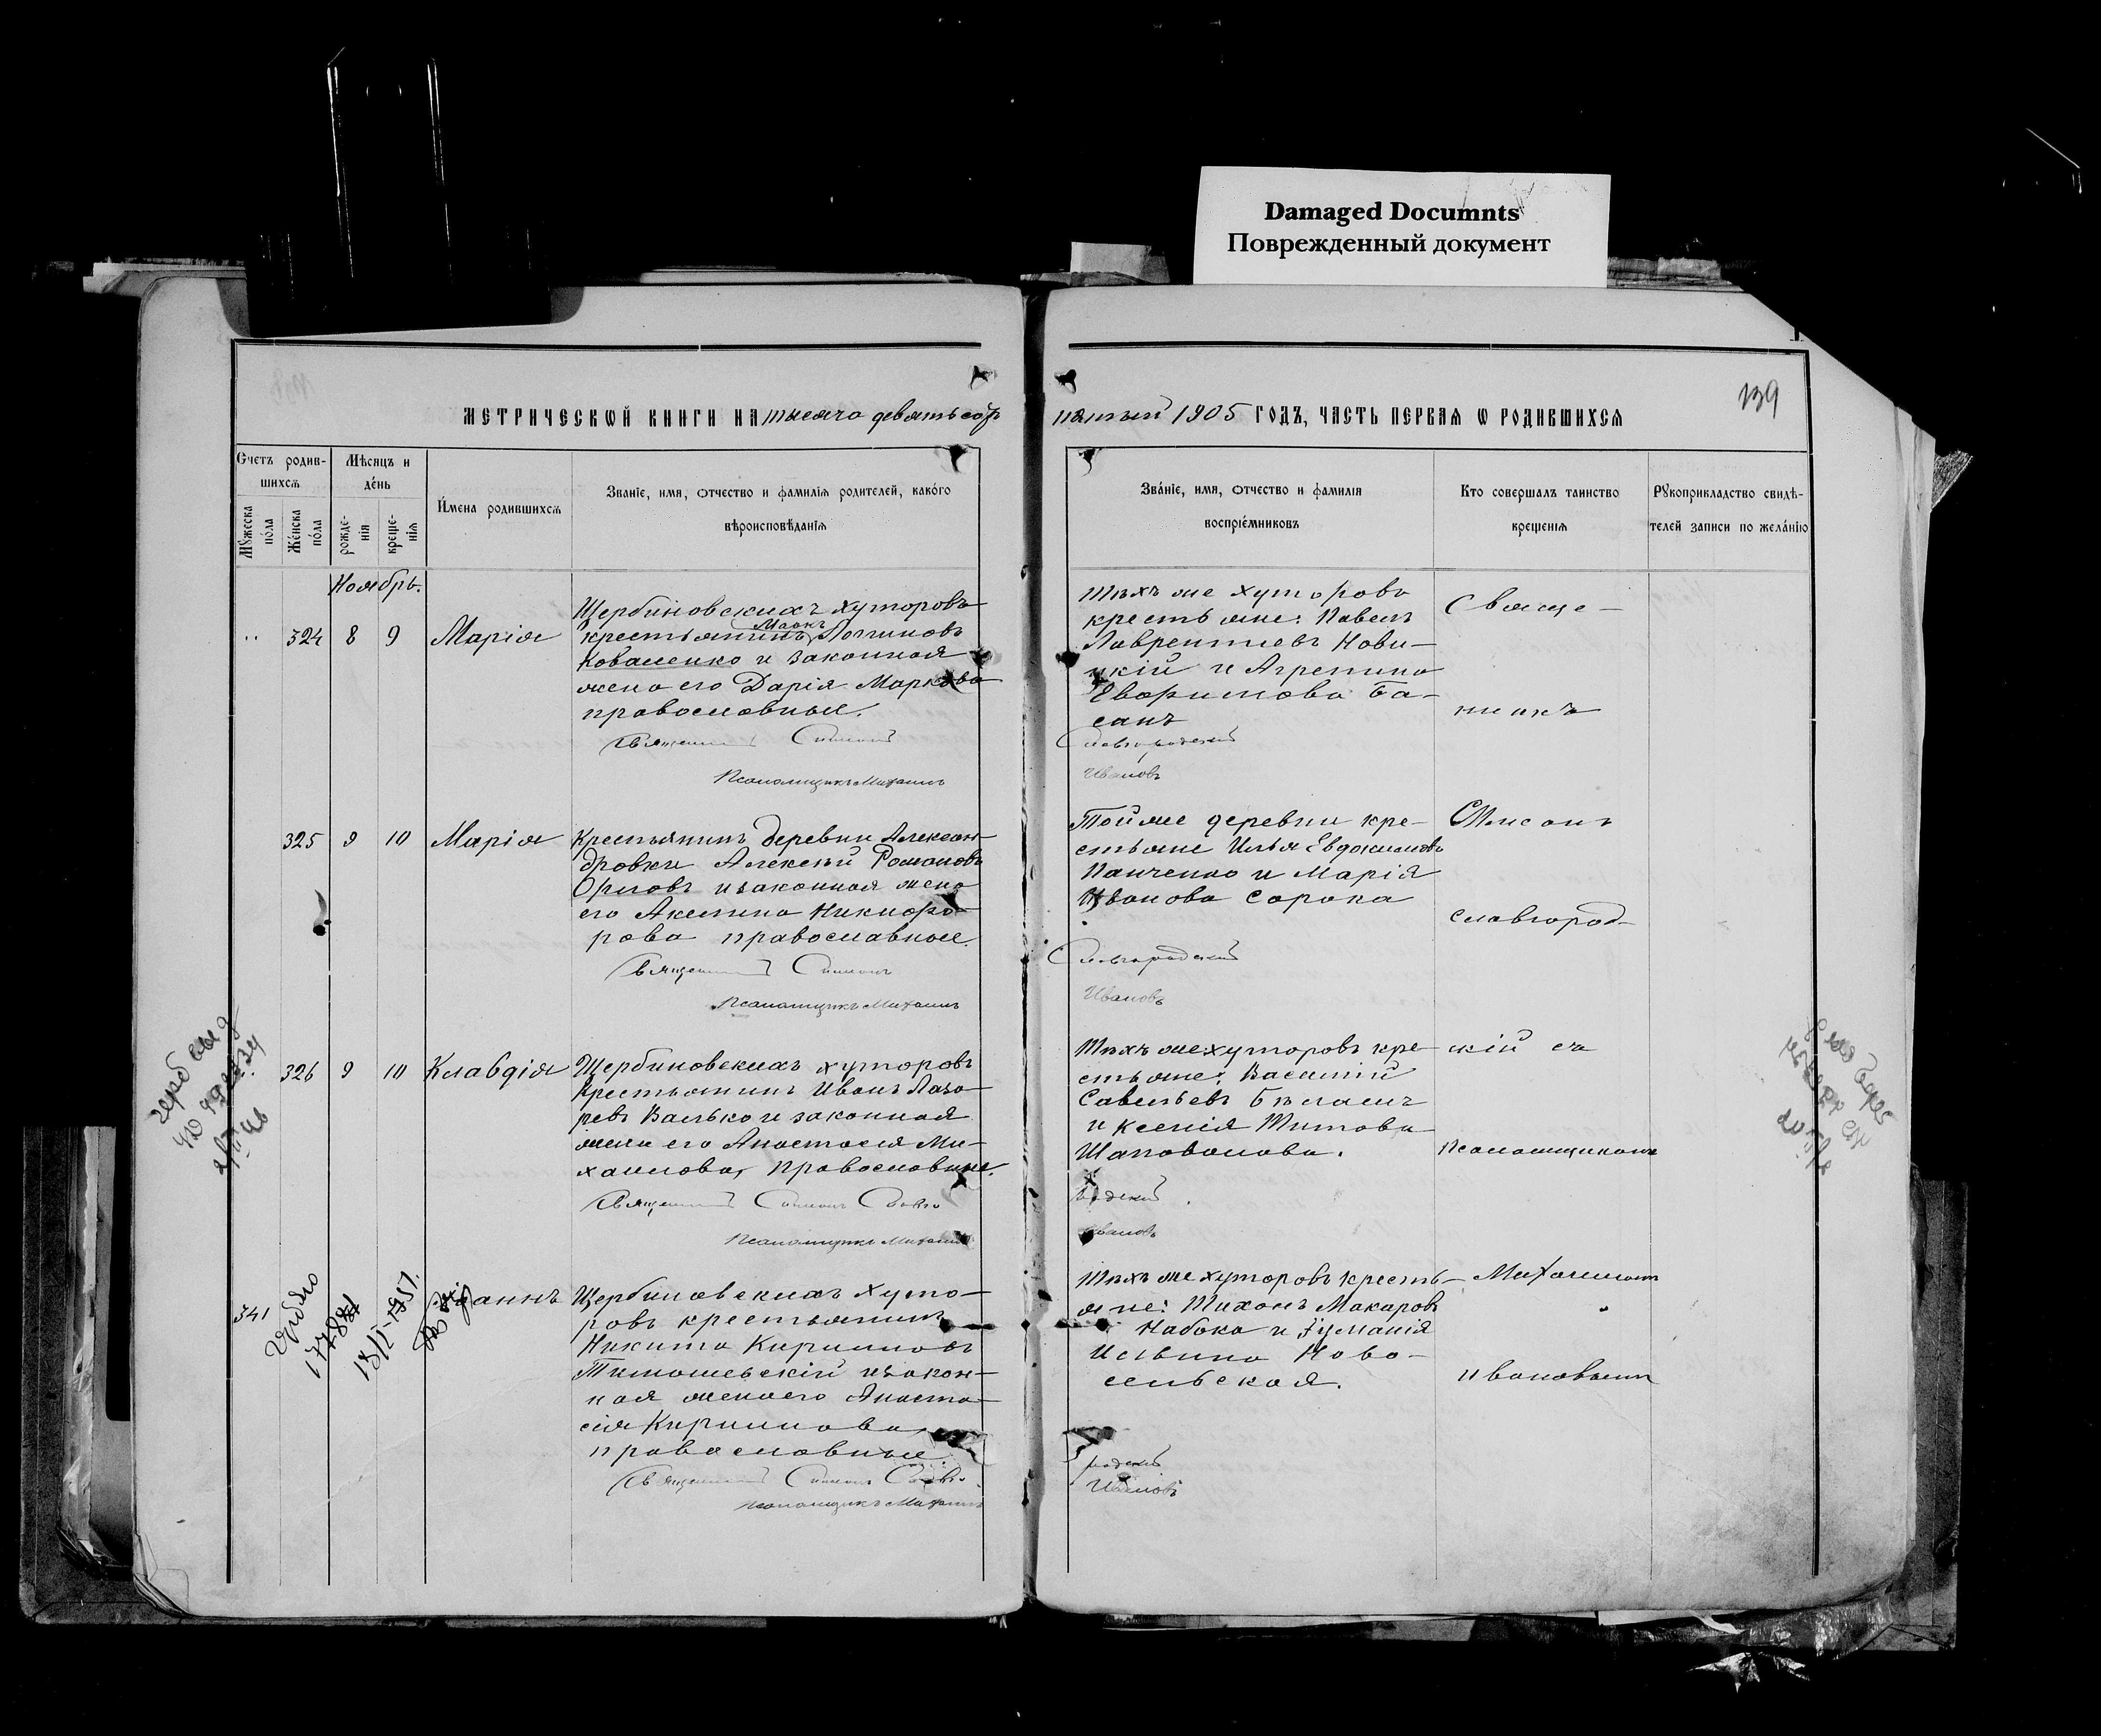 Damaged Documnts
Поврежденный документ
139
МЕТРИЧЕСКОЙ КНИГИ НА тысяча девятьсотъ
пятый 1905 ГОДЪ, ЧАСТЬ ПЕРВАЯ Ѡ РОДИВШИХСЯ
Счетъ родив-
шихся
Мужеска пола
Женска пола
Мѣсяцъ и
день
рожде-
нія
креще-
нія
Имена родившихся
Званіе, имя, отчество и фамилія родителей, какого
вѣроисповѣданія
Званіе, имя, отчество и фамилія
воспріемниковъ
Кто совершалъ таинство
крещенія
Рукоприкладство свидѣ-
телей записи по желанію
Ноябрь.
324 8 9 Марія
Щербиновскихъ хуторовъ
Маркъ
крестьянинъ Логгиновъ
Коваленко и законная
жена его Дарія Маркова
православные.
Священникъ Симонъ
Псаломщикъ Михаилъ
Тѣхъ же хуторовъ
крестьяне: Павелъ
Лаврентіевъ Нови-
цкій и Агрепина
Евфимова Ба-
санъ
Славгородскій
Ивановъ
Свяще-
нникъ
325 9 10 Марія
Крестьянинъ деревни Алексан-
дровки Алексѣй Романовъ
Орловъ и законная жена
его Акелина Никифо-
рова православные.
Священникъ Симонъ
Псаломщикъ Михаилъ
Той же деревни кре-
стьяне Илья Евдокимовъ
Панченко и Марія
Иванова Сорока
Славгородскій
Ивановъ
Симеонъ
Славгород-
326 9 10 Клавдія
Щербиновскихъ хуторовъ
крестьянинъ Иванъ Лаза-
ревъ Валько и законная
жена его Анастасія Ми-
хаилова, православные.
Священникъ Симонъ Славго
Псаломщикъ Михаилъ
Тѣхъ же хуторовъ кре-
стьяне: Василій
Савельевъ Бѣлашъ
и Ксенія Титова
Шаповалова.
родскій
Ивановъ
скій съ
Псаломщикомъ
341
18/I-1951.
Іоаннъ
Щербиновскихъ хуто-
ровъ крестьянинъ
Никита Кирилловъ
Тимошевскій и закон-
ная жена его Анаста-
сія Кириллова
православные.
Священникъ Симонъ Славго
Псаломщикъ Михаилъ
Тѣхъ же хуторовъ кресть-
яне: Тихонъ Макаровъ
Набока и
Ильина Ново-
сельская.
родскій
Ивановъ
Михаиломъ
Ивановымъ